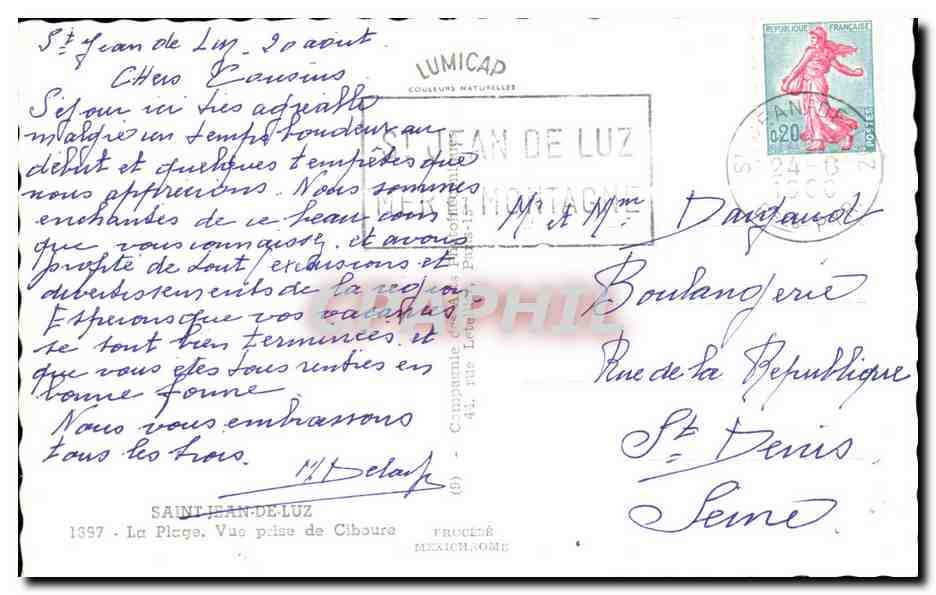 St Jean de Luz. 20 aout.
CHers Cousins
Séjour ici très agréable
malgré un temps boudeur au
début et quelques tempêtes que
nous apprécions. Nous sommes
enchantés de ce beau coin
que vous connaissez, et avons
profité de tout, excursions et
divertissements de la région
Esperons que vos vacances
se sont bien terminées, et
que vous êtes tous rentrés en
bonne forme.
Nous vous embrassons
tous les trois.
SAINT-JEAN-DE-LUZ
1897 - La Plage. Vue prise de Ciboure
LUMICAP
COULEURS NATURELLES
ST JEAN DE LUZ
MER ET MONTAGNE
(9) - Compagnie des Arts
41, rue Paris-15
PROCÉDÉ
MEXICHROME
CARAPHIL
REPUBLIQUE FRANÇAISE
0,20
POSTES
ST JEAN DE LUZ
24-8
1960
Mr et Mme Dargaud
Boulangerie
Rue de la République
St Denis
Seine